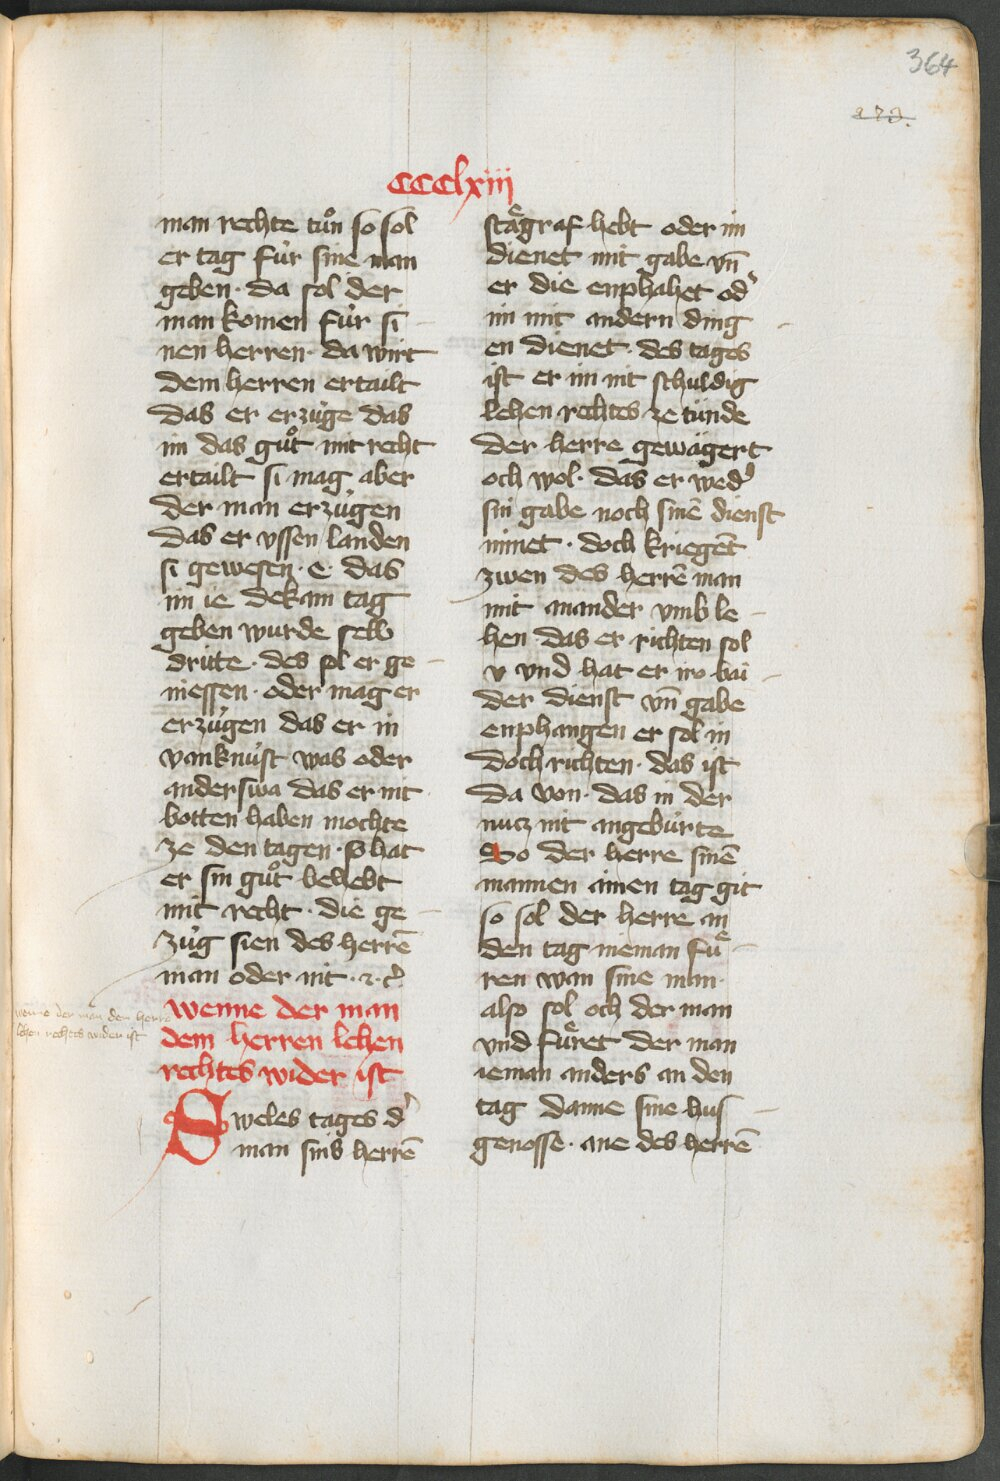 364
273.
CCClxiii
man rechte tuͦn so sol
er tag fúr sine man
geben · da sol der
man komen fúr si
nen herren · da wirt
dem herren ertailt
das er erzúge das
im das guͦt mit recht
ertailt si mag aber
der man erzúgen
das er vssen landen
si gewesen · e · das
im ie dekain tag
geben wurde selb
dritte · des sol er ge
niessen · oder mag er
erzúgen das er in
vanknúst was oder
anderswa das er nit
botten haben mochte
ze den tagen · so hat
er sin guͦt behebt
mit recht · die ge
zúg sien des herrē
man oder nit · ⁊ · cͥ
wenne der man
dem herren lehen
rechtes wider ist
wenne der man dem herre
lehen rechtes wider ist
Sweles tages dʾ
man sins herrē
staͤgraf hebt oder im
dienet mit gabe vn̄
er die enphahet odʾ
im mit andern ding
en dienet · des tages
ist er im nit schuldig
lehen rechtes ze tünde
der herre gewägert
och wol · das er wedʾ
sin gabe noch sinē dienst
nimet · doch kriegēt
zwen des herrē man
mit anander vmb le
hen das er richten sol
v vnd hat er iro bai
der dienst vn̄ gabe
enphangen er sol in
doch richten · das ist
da von · das in der
nucz nit angebúrte
So der herre sinē
mannen ainen tag git
so sol der herre an
den tag nieman fuͤ
ren wan sine man ·
also sol och der man
vnd fuͤret der man
ieman anders an den
tag danne sine hus
genosse · ane des herrē